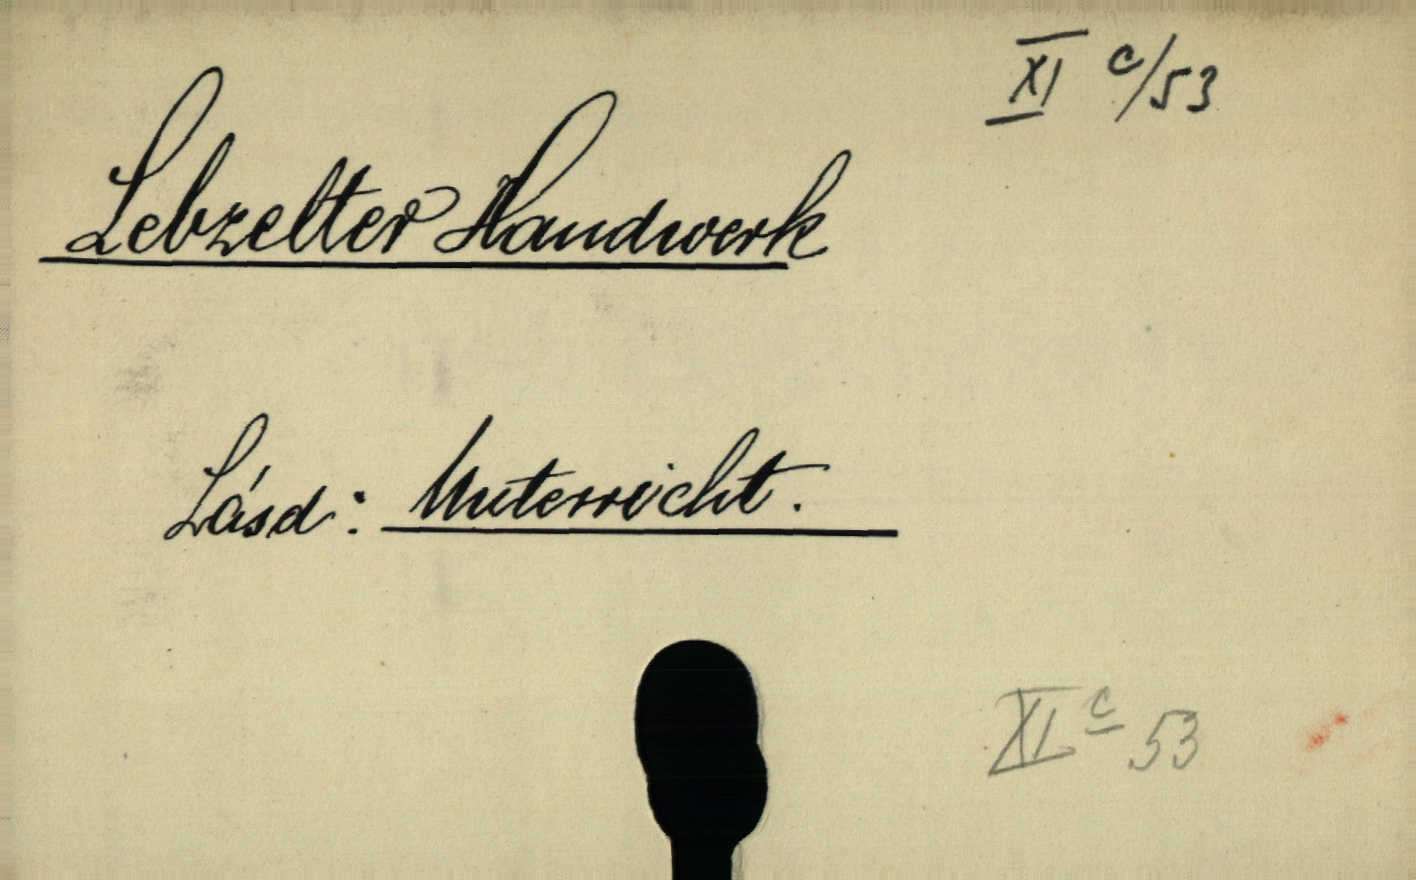 XI c/53
Lebzelter Handwerk
Lásd: Unterricht.
XI c 53